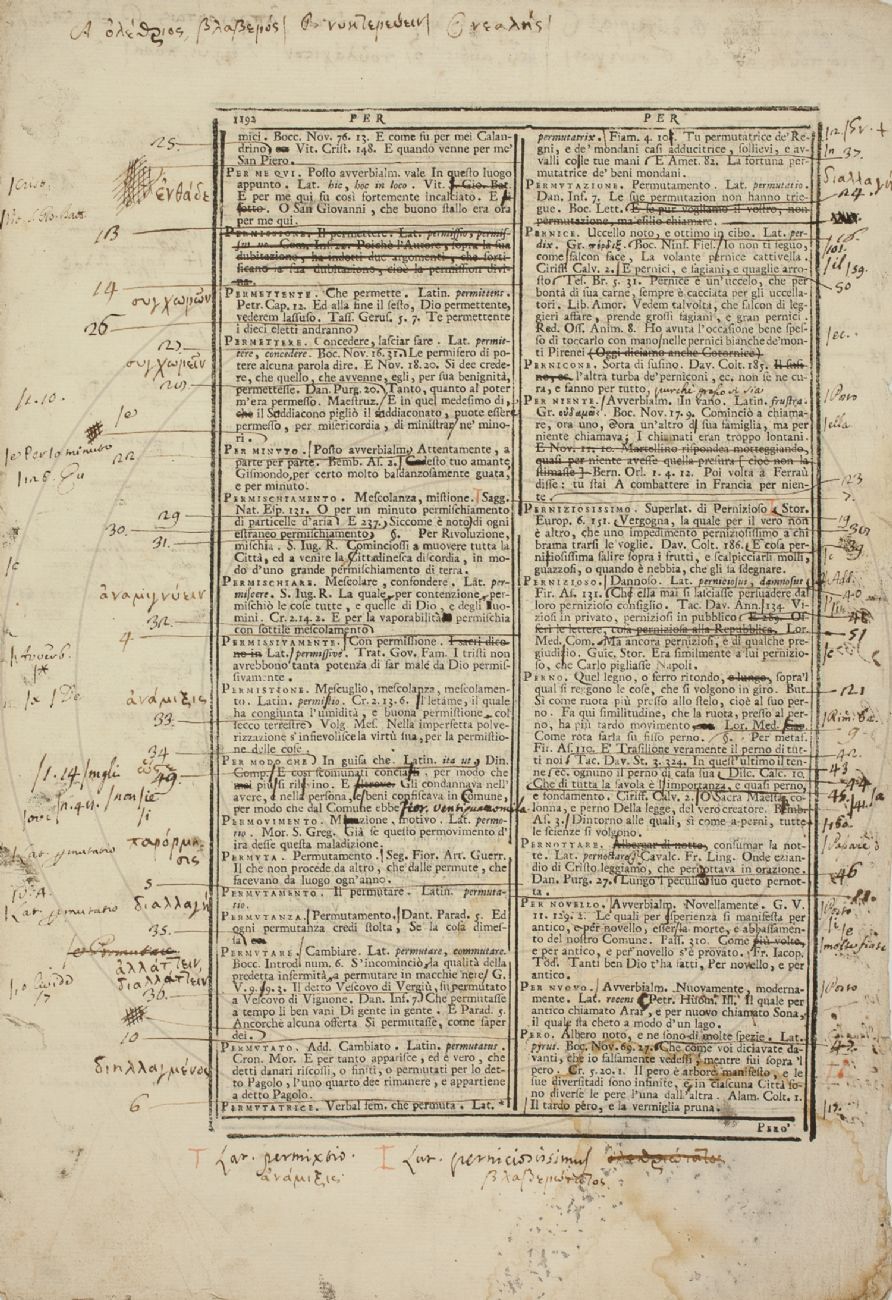 Α ὀλέθριος, βλαβερός| Β νυκτερεύειν| νεαλής|
1192 PER PER
mici. Bocc. Nov. 76. 13. E come fu per mei Calan-
drino Vit. Crist. 148. E quando venne per me'
San Piero.
PER ME QUI. Posto avverbialm. vale In questo luogo
appunto. Lat. hic, hoc in loco. Vit. S. Gio. Bat.
E per me qui fu così fortemente incalciato. E
sotto. O San Giovanni, che buono stallo era ora
per me qui.
PERMISSIONE. Il permettere. Lat. permissio, permis-
sus us. Com. Inf. 20. Poichè l'Autore, sopra la sua
dubitazione, ha indotti due argomenti, che forti-
ficano a sua dubitazione, cioè la permission divi-
na.
PERMETTENTE. Che permette. Latin. permittens.
Petr. Cap. 12. Ed alla fine il sesto, Dio permettente,
vederem lassuso. Tass. Gerus. 5. 7. Te permettente
i dieci eletti andranno
PERMETTERE. Concedere, lasciar fare. Lat. permit-
tere, concedere. Boc. Nov. 16. 31. Le permisero di po-
tere alcuna parola dire. E Nov. 18. 20. Si dee crede-
re, che quello, che avvenne, egli, per sua benignità,
permettesse. Dan. Purg. 20. Tanto, quanto al poter
m'era permesso. Maestruz. E in quel medesimo di,
che il Soddiacono pigliò il soddiaconato, puote essere
permesso, per misericordia, di ministrar ne' mino-
ri.
PER MINUTO. Posto avverbialm. Attentamente, a
parte per parte. Bemb. As. 2. Codesto tuo amante
Gismondo, per certo molto baldanzosamente guata,
e per minuto.
PERMISCHIAMENTO. Mescolanza, mistione. Sagg.
Nat. Esp. 131. O per un minuto permischiamento
di particelle d'aria E 237. Siccome è noto di ogni
estraneo permischiamento §. Per Rivoluzione,
mischia. S. Iug. R. Cominciossi a muovere tutta la
Città, ed a venire la Cittadinesca discordia, in mo-
do d'uno grande permischiamento di terra.
PERMISCHIARE. Mescolare, confondere. Lat. per-
miscere. S. Iug. R. La quale, per contenzione, per-
mischiò le cose tutte, e quelle di Dio, e degli uo-
mini. Cr. 2. 14. 2. E per la vaporabilità permischia
con sottile mescolamento
PERMISSIVAMENTE. Con permissione. I savi dico-
no in Lat. permissive. Trat. Gov. Fam. I tristi non
avrebbono tanta potenza di far male da Dio permis-
sivamente.
PERMISTIONE. Mescuglio, mescolanza, mescolamen-
to. Latin. permistio. Cr. 2. 13. 6. Il letáme, il quale
ha congiunta l'umidità, e buona permistione, col
secco terrestre Volg. Mes. Nella imperfetta polve-
rizzazione s'infievolisce la virtù sua, per la permistio-
ne delle cose.
PER MODO CHE In guisa che. Latin. ita ut, Din.
Comp. E così scomunati conciati, per modo che
mai più si rilevino. E altrove. Gli condannava nell'
avere, e nella persona, e beni confiscava in Comune,
per modo che dal Comune ebbe fior. ventiquattromila.
PERMOVIMENTO. Mozione, motivo. Lat. permo-
tio. Mor. S. Greg. Già se questo permovimento d'
ira desse questa maladizione.
PERMUTA. Permutamento. Seg. Fior. Art. Guerr.
Il che non procede da altro, che dalle permute, che
facevano da luogo ogn'anno.
PERMUTAMENTO. Il permutare. Latin. permuta-
tio.
PERMUTANZA. Permutamento. Dant. Parad. 5. Ed
ogni permutanza credi stolta, Se la cosa dimes-
sa
PERMUTARE. Cambiare. Lat. permutare, commutare.
Bocc. Introd. num. 6. S'incominciò la qualità della
predetta infermità, a permutare in macchie nere G.
V. 9. 93. 3. Il detto Vescovo di Vergiù, fu permutato
a Vescovo di Vignone. Dan. Inf. 7. Che permutasse
a tempo li ben vani Di gente in gente. E Parad. 5.
Ancorchè alcuna offerta Si permutasse, come saper
dei.
PERMUTATO. Add. Cambiato. Latin. permutatus.
Cron. Mor. E per tanto apparisce, ed è vero, che
detti danari riscossi, o finiti, o permutati per lo det-
to Pagolo, l'uno quarto dee rimanere, e appartiene
a detto Pagolo.
PERMUTATRICE. Verbal fem. che permuta. Lat.
permutatrix. Fiam. 4. 10. Tu permutatrice de' Re-
gni, e de' mondani casi adducitrice, sollievi, e av-
valli colle tue mani E Amet. 82. La fortuna per-
mutatrice de' beni mondani.
PERMUTAZIONE. Permutamento. Lat. permutatio.
Dan. Inf. 7. Le sue permutazion non hanno trie-
gue. Boc. Lett. E se pur vogliamo il vostro, non
permutazione, ma esilio chiamare.
PERNICE. Uccello noto, e ottimo in cibo. Lat. per-
dix. Gr. πέρδιξ. Boc. Ninf. Fies. Io non ti seguo,
come falcon face, La volante pernice cattivella.
Ciriff. Calv. 2. E pernici, e fagiani, e quaglie arro-
sto Tes. Br. 5. 31. Pernice è un'uccelo, che per
bontà di sua carne, sempre è cacciata per gli uccella-
tori. Lib. Amor. Vedem talvolta, che falcon di leg-
gieri affare, prende grossi fagiani, e gran pernici.
Red. Oss. Anim. 8. Ho avuta l'occasione bene spes-
so di toccarlo con mano nelle pernici bianche de' mon-
ti Pirenei (Oggi diciamo anche Cotornice)
PERNICONE. Sorta di susino. Dav. Colt. 185. Il susi-
no, ec. l'altra turba de' perniconi, ec. non se ne cu-
ra, e fanno per tutto,
PER NIENTE. Avverbialm. In vano. Latin. frustra.
Gr. οὐδαμῶς. Boc. Nov. 17. 9. Cominciò a chiama-
re, ora uno, ora un'altro di sua famiglia, ma per
niente chiamava; I chiamati eran troppo lontani.
E Nov. 11. 10. Martellino rispondea motteggiando,
quasi per niente avesse quella presura [cioè non la
stimasse] Bern. Orl. 1. 4. 12. Poi volta a Ferraù
disse: tu stai A combattere in Francia per nien-
te.
PERNIZIOSISSIMO. Superlat. di Pernizioso Stor.
Europ. 6. 151. Vergogna, la quale per il vero non
è altro, che uno impedimento perniziosissimo a chi
brama trarsi le voglie. Dav. Colt. 186. E cosa per-
niziosissima salire sopra i frutti, e scalpicciarli molli,
guazzosi, o quando è nebbia, che gli fa sdegnare.
PERNIZIOSO. Dannoso. Lat. perniciosus, damnosus
Fir. As. 131. Che ella mai si lasciasse persuadere dal
loro pernizioso consiglio. Tac. Dav. Ann. 134. Vi-
ziosi in privato, perniziosi in pubblico E 289. Of-
ferì le lettere, cosa perniziosa alla Repubblica. Lor.
Med. Com. Ma ancora perniziosi, e di qualche pre-
giudizio. Guic. Stor. Era similmente a lui pernizio-
so, che Carlo pigliasse Napoli.
PERNO. Quel legno, o ferro ritondo, e lungo, sopra'l
qual si reggono le cose, che si volgono in giro. But.
Si come ruota più presso allo stelo, cioè al suo per-
no. Fa qui similitudine, che la ruota, presso al per-
no, ha più tardo movimento Lor. Med.
Come rota farla su fisso perno. §. Per metaf.
Fir. As. 110. E' Trasilione veramente il perno di tut-
ti noi Tac. Dav. St. 3. 324. In quest'ultimo il ten-
ne ec. ognuno il perno di casa sua Disc. Calc. 10.
Che di tutta la favola è l'importanza, e quasi perno,
e fondamento. Ciriff. Calv. 2. O Sacra Maestà co-
lonna, e perno Della legge, del vero creatore. Bemb.
As. 3. Dintorno alle quali, sì come a perni, tutte
le scienze si volgono.
PERNOTTARE. Albergar di notte, consumar la not-
te. Lat. pernoctare. Cavalc. Fr. Ling. Onde ezian-
dio di Cristo leggiamo, che pernottava in orazione.
Dan. Purg. 27. Lungo 'l peculio suo queto pernot-
ta.
PER NOVELLO. Avverbialm. Novellamente. G. V.
11. 129. 2. Le quali per isperienza si manifesta per
antico, e per novello, essersi la morte, e abbassamento
del nostro Comune. Pass. 310. Come più volte,
e per antico, e per novello s'è provato. Fr. Iacop.
Tod. Tanti ben Dio t'ha fatti, Per novello, e per
antico.
PER NUOVO. Avverbialm. Nuovamente, moderna-
mente. Lat. recens Petr. Huom. Ill. Il quale per
antico chiamato Arar, e per nuovo chiamato Sona,
il quale sta cheto a modo d'un lago.
PERO. Albero noto, e ne sono di molte spezie. Lat.
pyrus. Boc. Nov. 69. 27. Che come voi diciavate da-
vanti, che io falsamente vedessi, mentre fui sopra 'l
pero. Cr. 5. 20. 1. Il pero è arbore manifesto, e le
sue diversitadi sono infinite, e in ciascuna Città so-
no diverse le pere l'una dall'altra. Alam. Colt. 1.
Il tardo pero, e la vermiglia pruna.
PERO'
25.
ἐνθάδε
113
14
συγχωρῶν
26
συγχωρεῖν
20
29
30.
31.
ἀναμιγνύειν
32.
4
ἀνάμιξις
33
34
49.
παρόρμησις
5
διαλλαγή
35.
ἀλλάττειν,
διαλλάττειν
36.
10
διηλλαγμένος
6
διαλλαγή
24.
50
23
7.
40
51
121
9
42
43
46
Lat. permixtio. Lat. perniciosissimus
ἀνάμιξις. βλαβερώτατος.